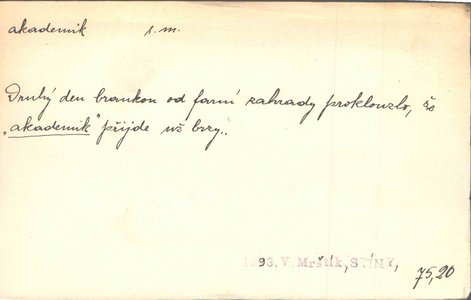 akademik s. m.
Druhý den brankou od farní zahrady proklouzlo, že
„akademik" přijde už brzy..
1893, V. Mrštík, STÍNY, 75,20